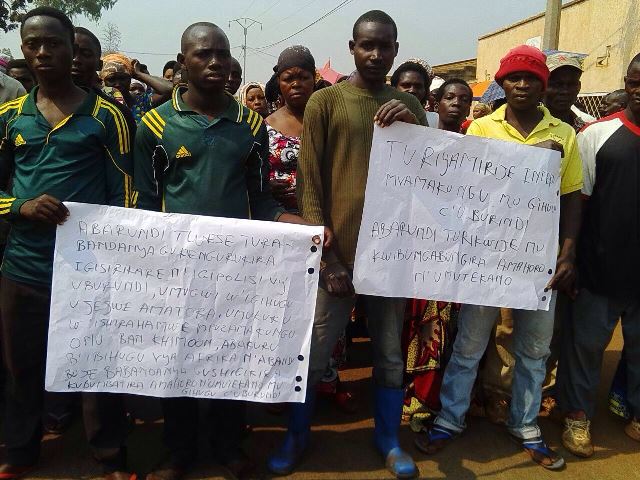 ABARUNDI TWESE TURA-
BANDANYA GUKENGURUKIRA
IGISIRIKARE N'IGIPOLISI VY
UBURUNDI, UMUGWI W'IGIHUGU
UJEJWE AMATORA, UMUKURU
W'ISHIRAHAMWE MPUZAMAKUNGU
ONU BAN KHIMOON, ABAKURU
B'IBIHUGU VYA AFRIKA N'ABANDI
BOSE BABANDANYA GUSHIGIKIRA
KUBUNGABUNGIRA AMAHORO N'UMUTEKANO MU
GIHUGU C'UBURUNDI
TURIYAMIRIJE
MVAMAKUNGU MU GIHUGU
C'U BURUNDI
ABARUNDI TURIKWIJE MU
KWIBUNGABUNGIRA AMAHORO
N'UMUTEKANO
adidas